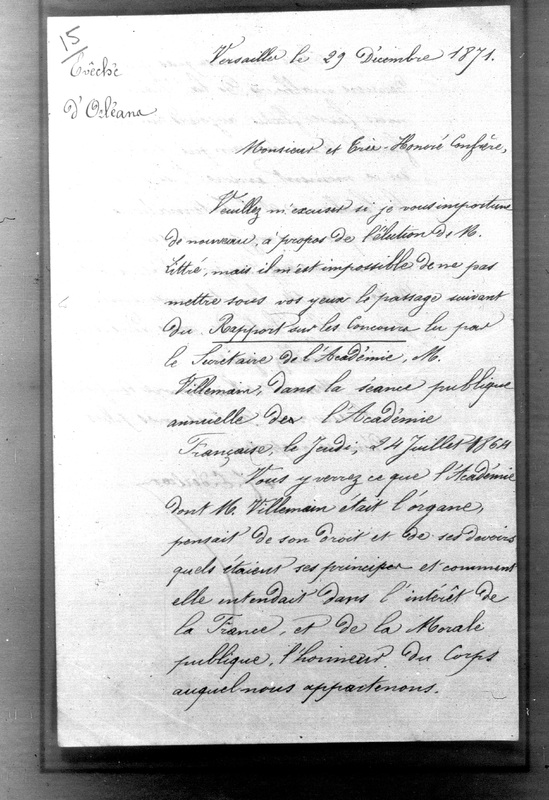 15
Evêché
d'Orléans
Versailles le 29 Décembre 1871.
Monsieur et Très-Honoré Confrère,
Veuillez m'excuser si je vous importune
de nouveau, à propos de l'élection de M.
Littré, mais il m'est impossible de ne pas
mettre sous vos yeux le passage suivant
du Rapport sur les Concours lu par
le Secrétaire de l'Académie, M.
Villemain, dans la séance publique
annuelle de l'Académie
Française, le Jeudi, 24 Juillet 1864
Vous y verrez ce que l'Académie
dont M. Villemain était l'organe,
pensait de son droit et de ses devoirs
quels étaient ses principes et comment
elle entendait dans l'intérêt de
la France, et de la Morale
publique, l'honneur du Corps
auquel nous appartenons.